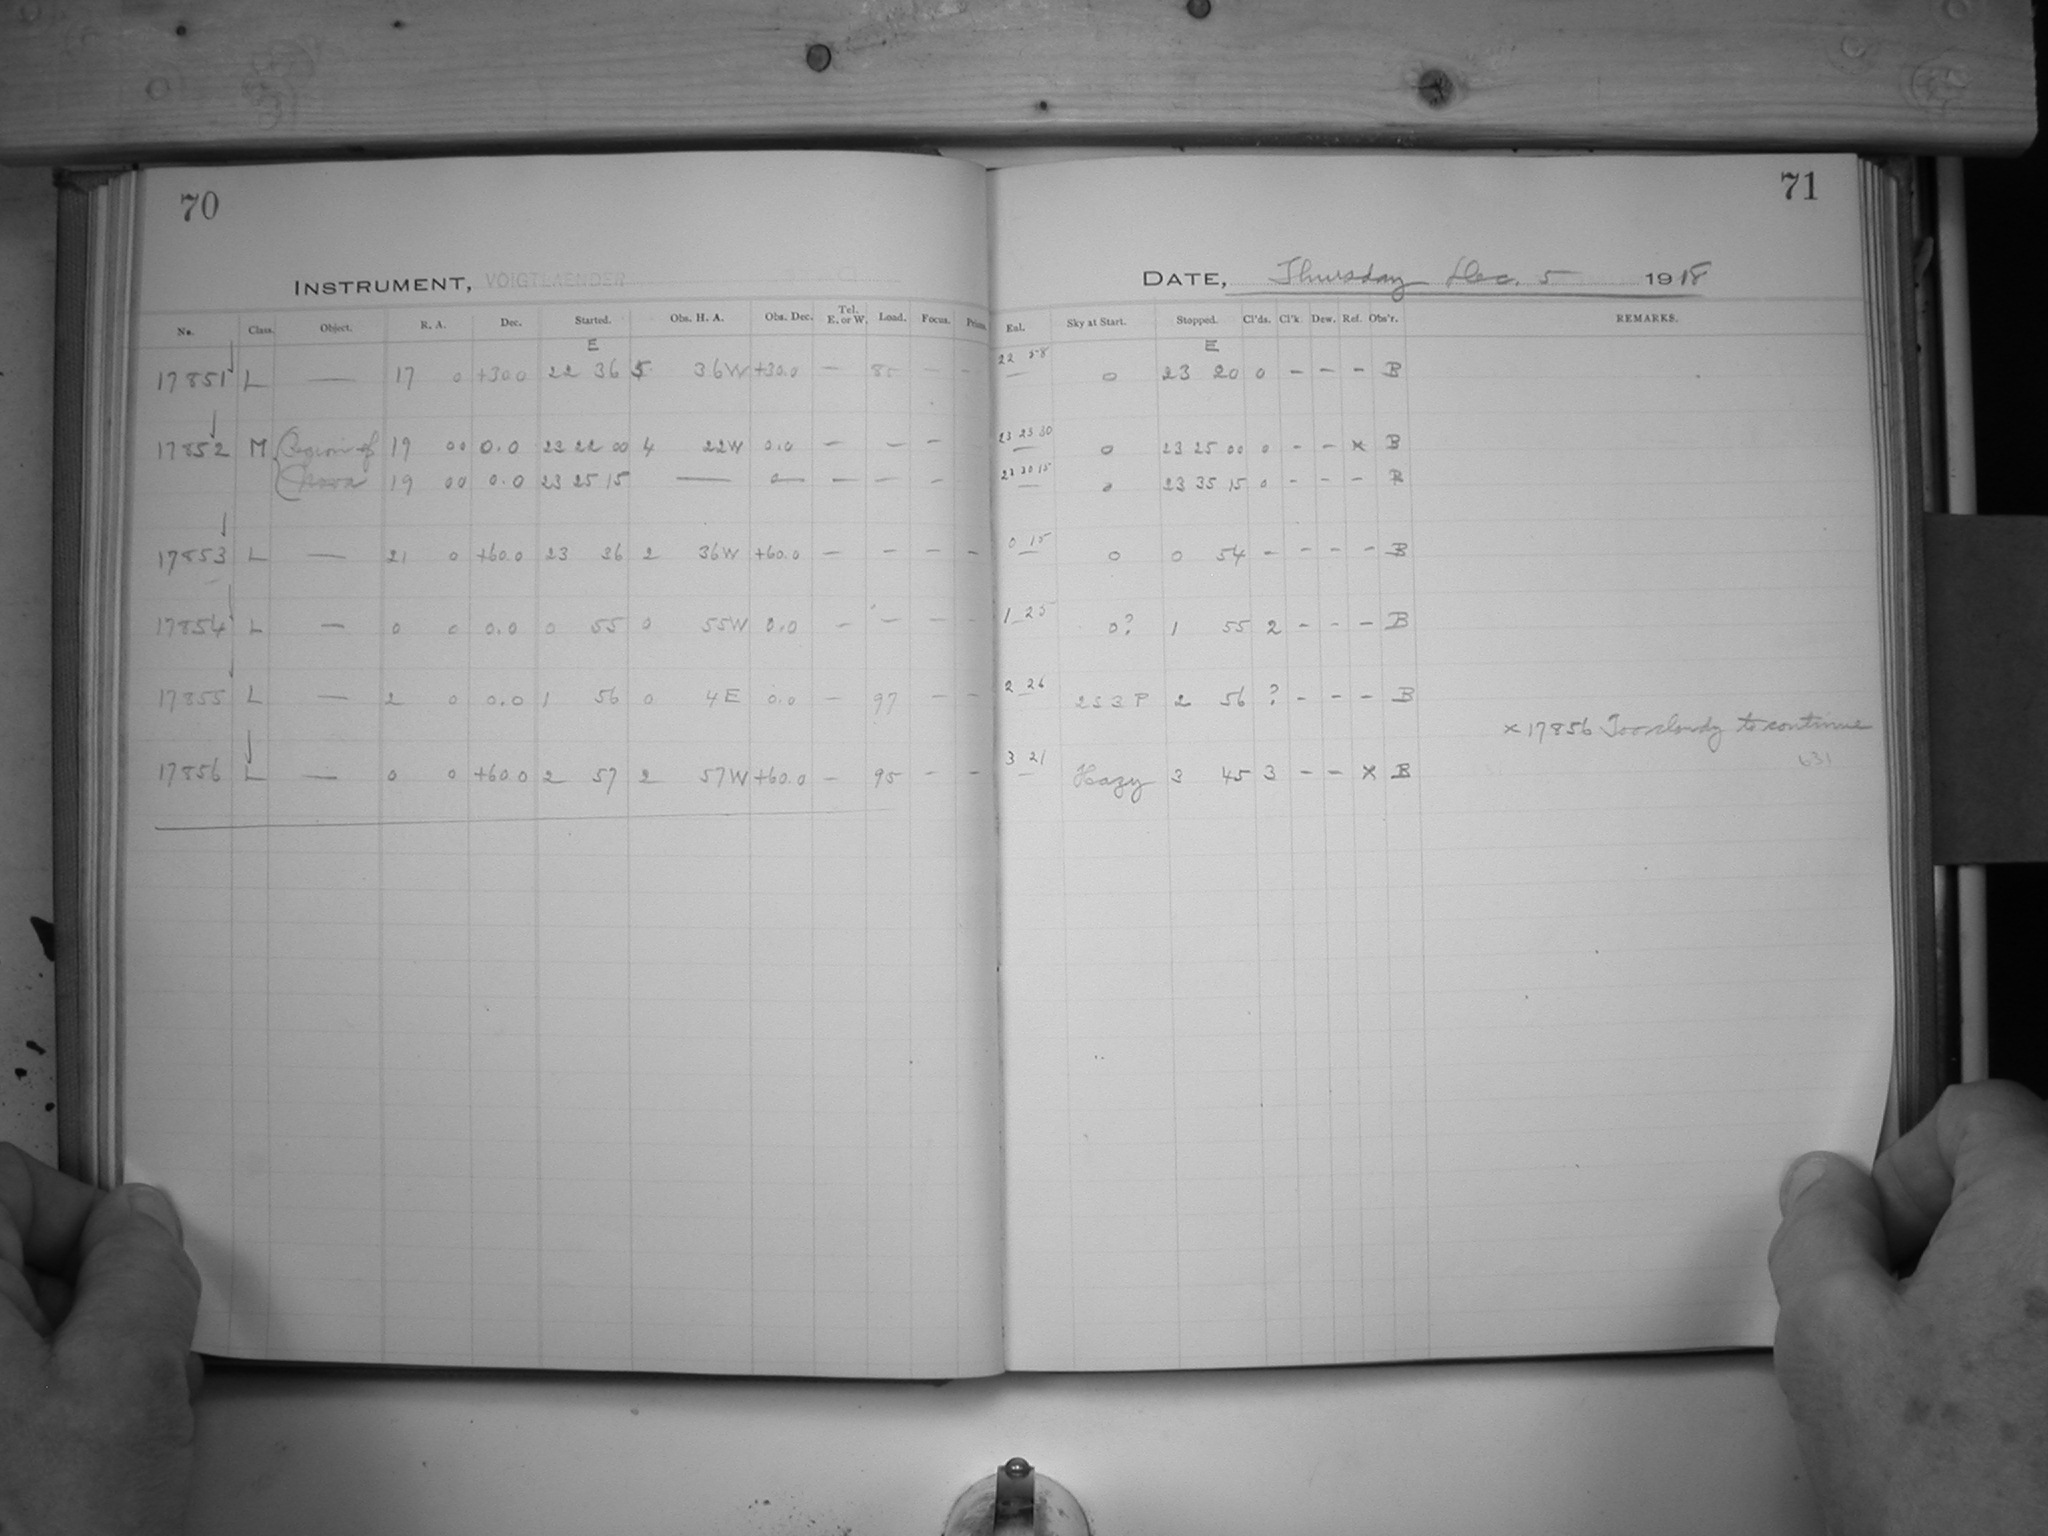 70
71
INSTRUMENT, VOIGTLAENDER
DATE, Thursday Dec. 5 1918
No. Class. Object. R. A. Dec. Started. Obs. H. A. Obs. Dec. Tel. E. or W. Load. Focus. Prism. Eql. Sky at Start. Stopped. Cl'ds. Cl'k Dew. Ref. Obs'r. REMARKS.
E E
17851 L — 17 0 +30.0 22 36 5 36W +30.0 — 85 — — 22 58 0 23 20 0 — — — B
17852 M Region of 19 00 0.0 23 22 00 4 22W 0.0 — — — 23 23 30 0 23 25 00 0 — — x B
Nova 19 00 0.0 23 25 15 — 0 — — — 23 30 15 0 23 35 15 0 — — — B
17853 L — 21 0 +60.0 23 36 2 36W +60.0 — — — — 0 15 0 0 54 — — — — B
17854 L — 0 0 0.0 0 55 0 55W 0.0 — — — — 1 25 0? 1 55 2 — — — B
17855 L — 2 0 0.0 1 56 0 4E 0.0 — 97 — — 2 26 2S3P 2 56 ? — — — B
x 17856 Too cloudy to continue
17856 L — 0 0 +60.0 2 57 2 57W +60.0 — 95 — — 3 21 Hazy 3 45 3 — — x B
631